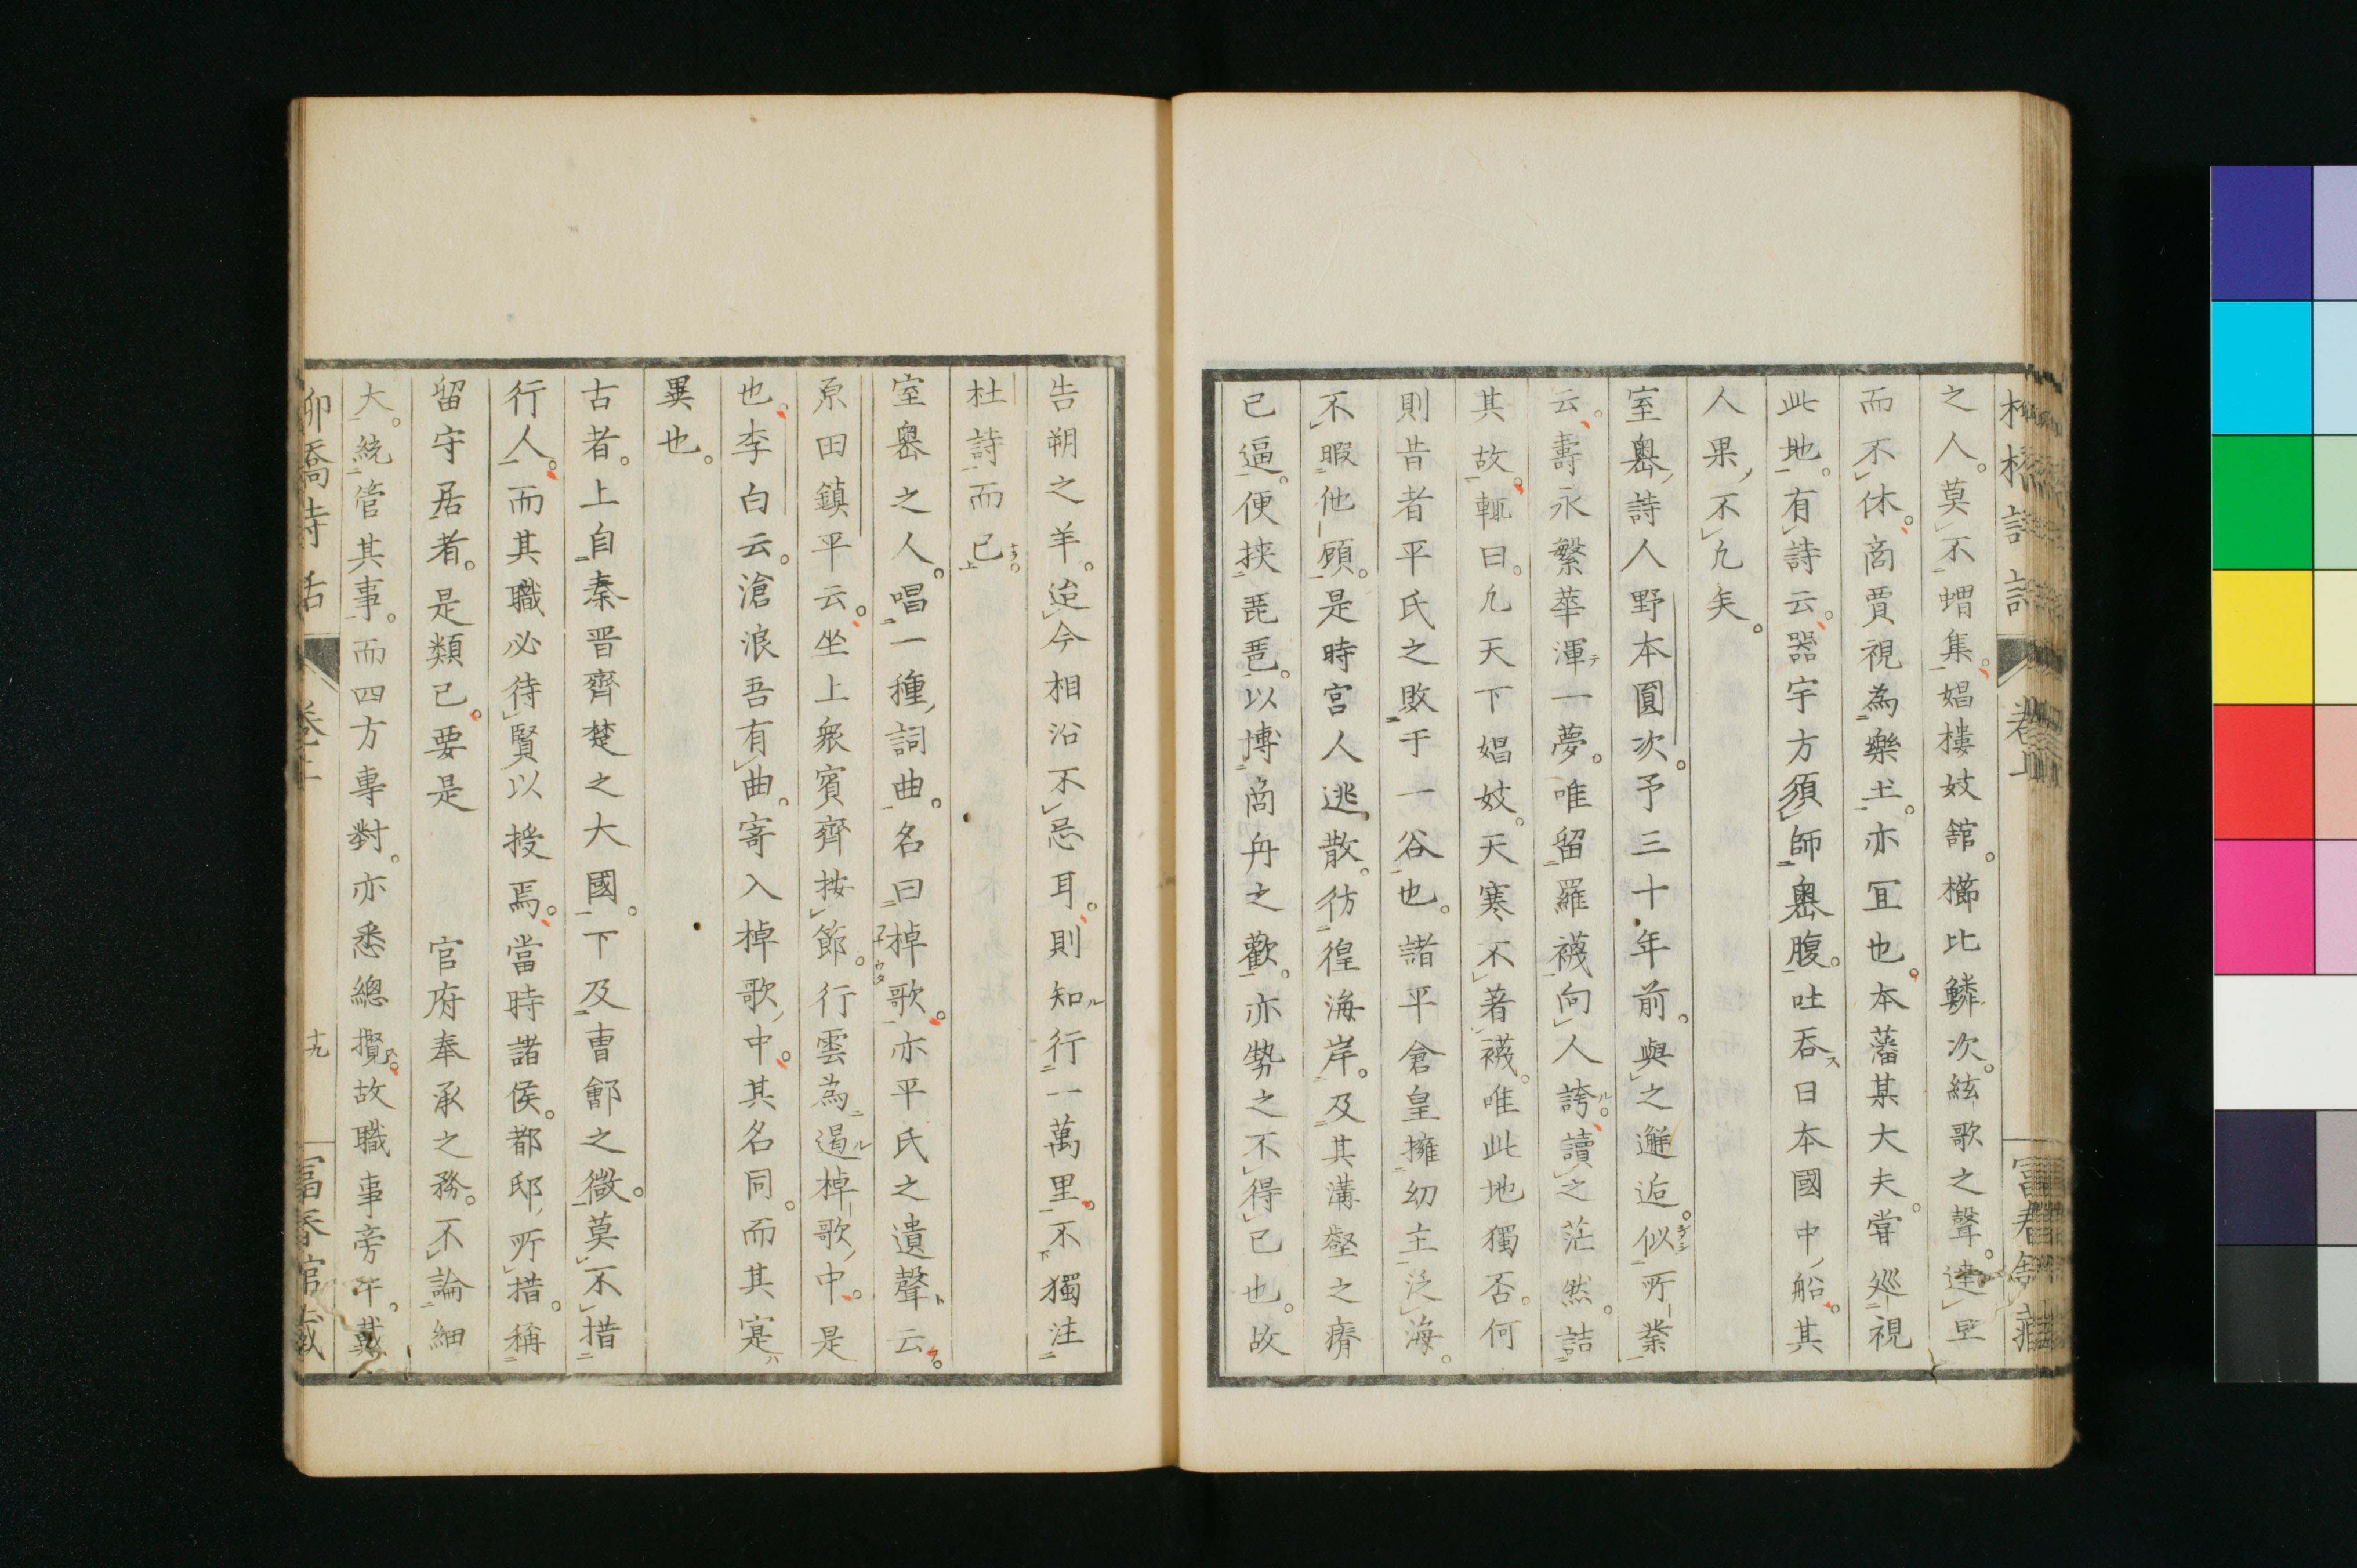 之人。莫不蝟集。娼樓妓舘。櫛比鱗次。絃歌之聲。達旦
而不休。商賈視為樂土。亦宜也。本藩某大夫。甞廵視
此地。有詩云。器宇方須師嶴腹。吐吞日本國中船。其
人果不凢矣。
室嶴詩人野本圓次。予三十年前。與之邂逅。似所業
云。壽永繁華渾一夢。唯留羅襪向人誇。讀之茫然。詰
其故。輒曰。凢天下娼妓。天寒不著襪。唯此地獨否。何
則昔者平氏之敗于一谷也。諸平倉皇擁幼主泛海。
不暇他顧。是時宮人逃散。彷徨海岸。及其溝壑之瘠
已逼。便挾琵琶。以博商舟之歡。亦勢之不得已也。故
告朔之羊。迨今相沿不忘耳。則知行一萬里。不獨注
杜詩而已
室嶴之人。唱一種詞曲。名曰棹歌。亦平氏之遺聲云。
原田鎮平云。坐上衆賓齊按節。行雲為遏棹歌中。是
也。李白云。滄浪吾有曲。寄入棹歌中。其名同。而其寔
異也。
古者。上自秦晋齊楚之大國。下及曹鄶之微。莫不措
行人。而其職必待賢以授焉。當時諸侯。都邸所措。稱
留守居者。是類已。要是 官府奉承之務。不論細
大。統管其事。而四方專對。亦悉總攬。故職事旁午。
柳橋詩話 卷上
十九